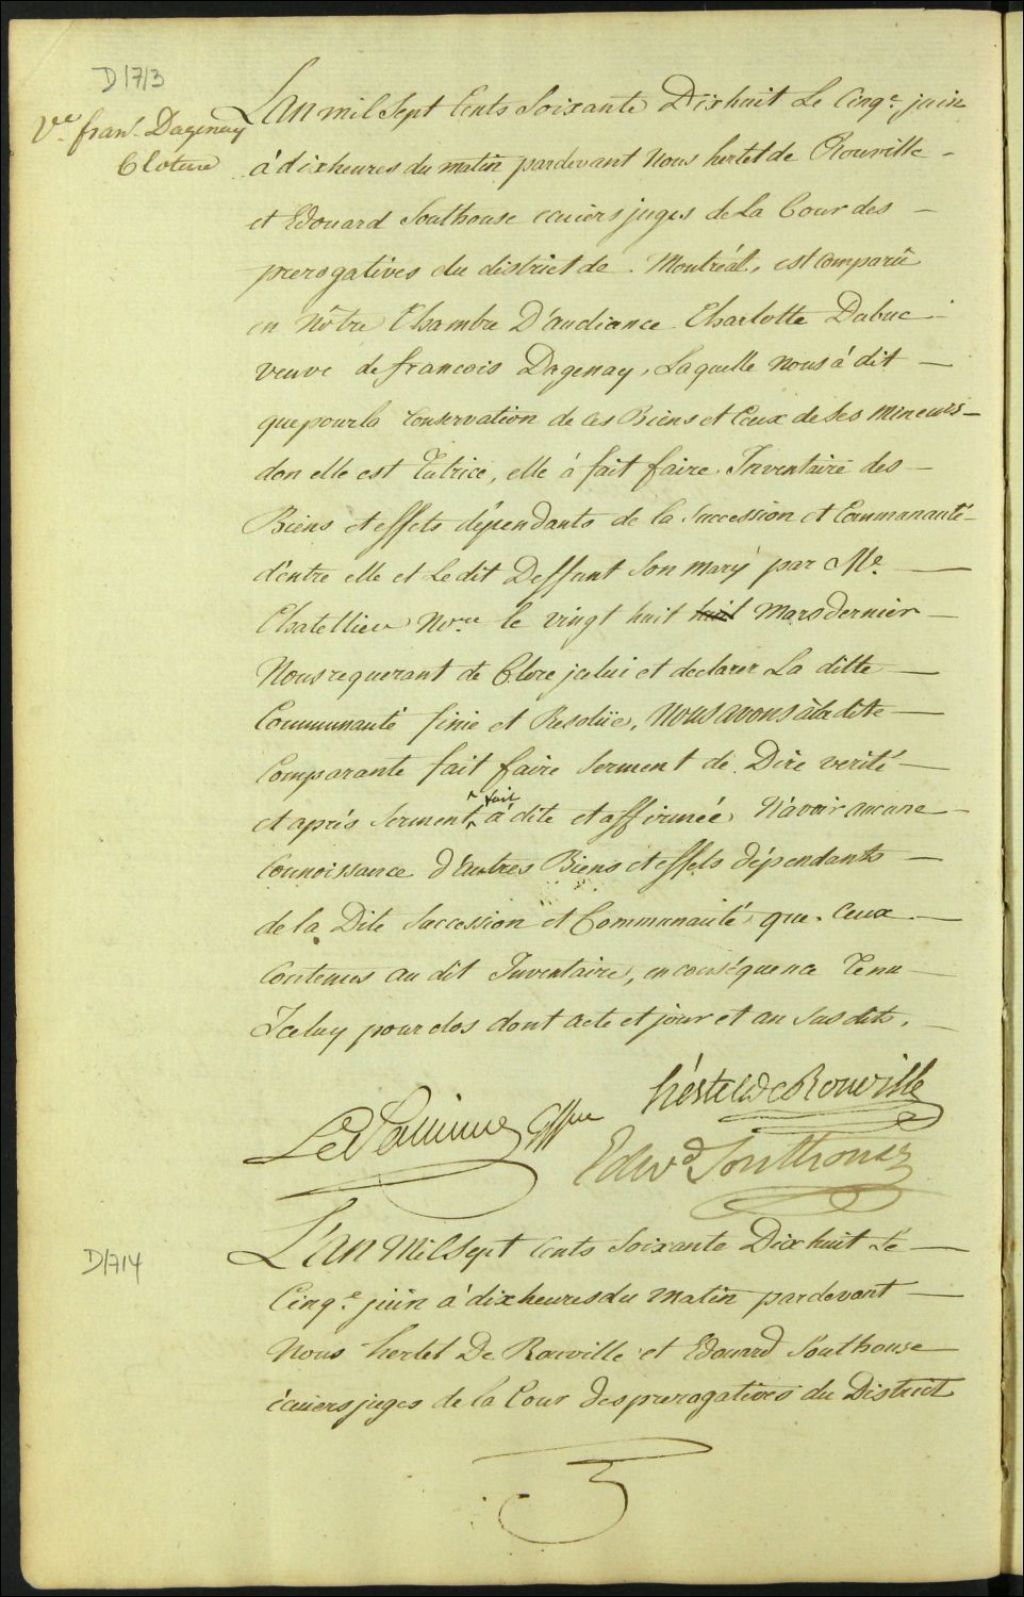 D1713
Ve. fran. Dagenay
Cloture
L'an mil Sept Cents Soixante Dixhuit Le Cinqe. juin
à dix heures du matin pardevant Nous hertel de Rouville -
et Edouard Southouse écuiers juges de La Cour des -
prerogatives du district de Montréal, est comparû
en Nôtre Chambre D'audiance Charlotte Dubuc -
veuve de francois Dagenay, Laquelle nous à dit -
que pour la Conservation de ces Biens et Ceux de Ses Mineurs -
don elle est Tutrice, elle à fait faire Inventaire des -
Biens et effets dépendants de la Succession et Communauté -
d'entre elle et Ledit Deffunt Son mary par Me. -
Chatellier Nore. le vingt huit huit Mars dernier -
Nous requerant de Clore jcelui et declarer La ditte -
Communauté finie et Resolüe, Nous avons à la dite -
Comparante fait faire Serment de Dire verité -
et après Serment fait à dite et affirmée N'avoir aucune -
Connoissance d'autres Biens et effets dépendants -
de la Dite Succession et Communauté que Ceux -
Contenus au dit Inventaire, en conséquence Tenu -
Iceluy pour clos dont acte et jour et an Susdits. -
hertel De Rouville
Edwd Southouse
L'an Mil Sept Cents Soixante Dix huit Le -
Cinqe. juin à dix heures du matin pardevant -
Nous hertel De Rouville et Edouard Southouse
écuiers juges de la Cour des prerogatives du District
D1714